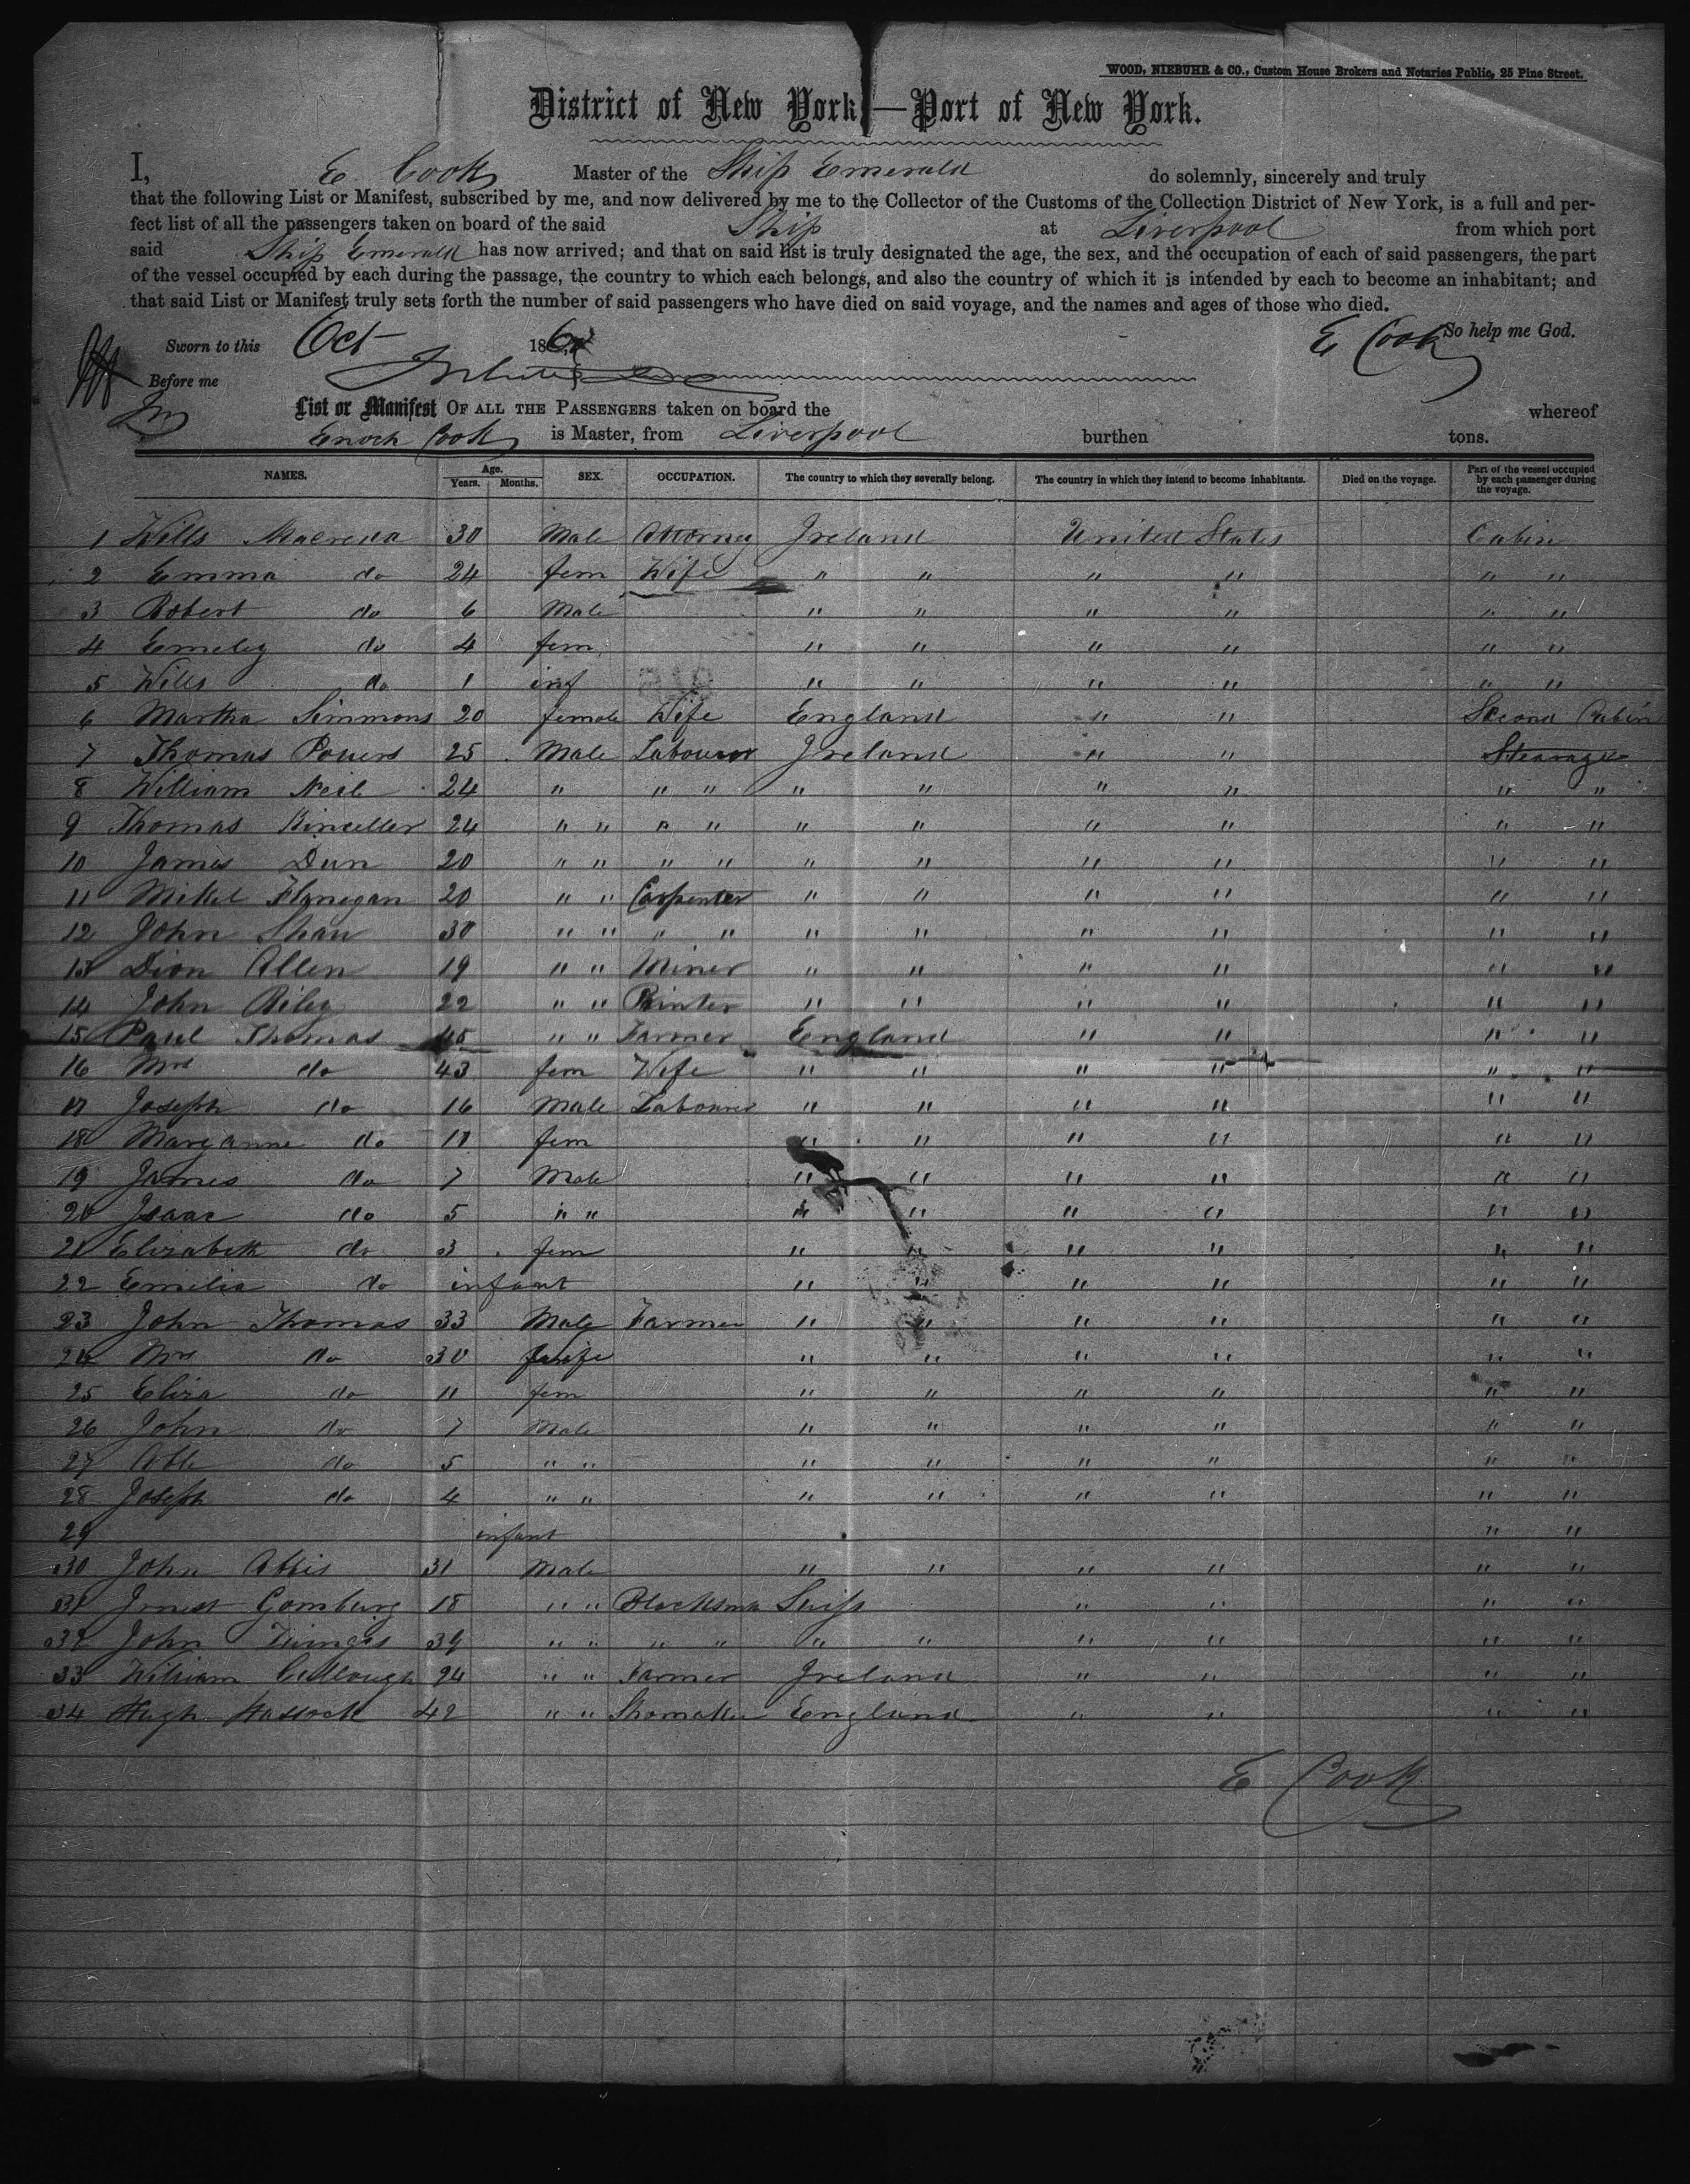 WOOD, NIEBUHR & CO., Custom House Brokers and Notaries Public, 25 Pine Street.
District of New York—Port of New York.
I, E. Cook Master of the Ship Emerald do solemnly, sincerely and truly
that the following List or Manifest, subscribed by me, and now delivered by me to the Collector of the Customs of the Collection District of New York, is a full and per-
fect list of all the passengers taken on board of the said Ship at Liverpool from which port
said Ship Emerald has now arrived; and that on said list is truly designated the age, the sex, and the occupation of each of said passengers, the part
of the vessel occupied by each during the passage, the country to which each belongs, and also the country of which it is intended by each to become an inhabitant; and
that said List or Manifest truly sets forth the number of said passengers who have died on said voyage, and the names and ages of those who died.
Sworn to this Oct 186 E Cook So help me God.
Before me
List or Manifest OF ALL THE PASSENGERS taken on board the whereof
Enoch Cook is Master, from Liverpool burthen tons.
NAMES. Age. Years. Months. SEX. OCCUPATION. The country to which they severally belong. The country in which they intend to become inhabitants. Died on the voyage. Part of the vessel occupied by each passenger during the voyage.
1 Wills 30 Male Attorney Ireland United States Cabin
2 Emma do 24 fem Wife " " " " " "
3 Robert do 6 Male " " " " " "
4 Emely do 4 fem " " " " " "
5 Wills do 1 inf " " " " " "
6 Martha Simmons 20 female Wife England " " Second Cabin
7 Thomas Powers 25 Male Labourer Ireland " " Stearage
8 William Neil 24 " " " " " " " " "
9 Thomas Kinceller 24 " " " " " " " " " "
10 James Dun 20 " " " " " " " " " "
11 Mikel Flanegan 20 " " Carpenter " " " " " "
12 John Shaw 30 " " " " " " " " " "
13 Dion Allen 19 " " Miner " " " " " "
14 John Riley 22 " " Printer " " " " " "
15 Paul Thomas 45 " " Farmer England " " " "
16 Mrs do 43 fem Wife " " " " " "
17 Joseph do 16 Male Labourer " " " " " "
18 Maryanne do 11 fem " " " " " "
19 James do 7 Male " " " " " "
20 Isaac do 5 " " " " " " " "
21 Elizabeth do 3 fem " " " " " "
22 Emilia do infant " " " " " "
23 John Thomas 33 Male Farmer " " " " " "
24 Mrs do 30 " " " " " "
25 Eliza do 11 fem " " " " " "
26 John do 7 Male " " " " " "
27 Able do 5 " " " " " " " "
28 Joseph do 4 " " " " " " " "
29 infant " "
30 John 31 Male " " " " " "
31 Gomburg 18 " " Blacksm Swiss " " " "
32 John 39 " " " " " " " " " "
33 William Cullough 24 " " Farmer Ireland " " " "
34 Hugh Hassock 42 " " Shomaker England " " " "
E Cook